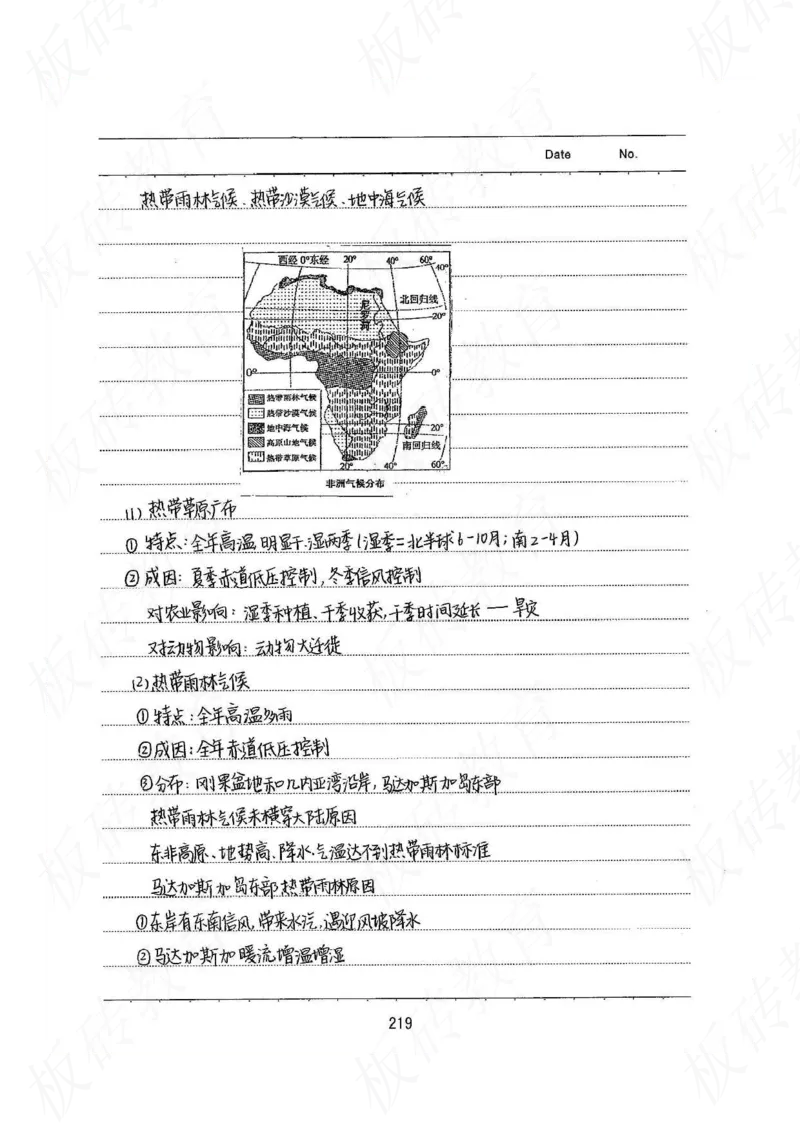 Date No.
热带雨林气候、热带沙漠气候、地中海气候
西经 0°东经 20° 40° 60°
40°
北回归线
尼罗河
20°
0° 0°
热带雨林气候
热带沙漠气候
地中海气候
高原山地气候
热带草原气候
20°
南回归线
20° 40° 60°
非洲气候分布
(1) 热带草原广布
① 特点:全年高温,明显干、湿两季(湿季=北半球6-10月;南2-4月)
② 成因:夏季赤道低压控制,冬季信风控制
对农业影响:湿季种植、干季收获,干季时间延长—旱灾
对动物影响:动物大迁徙
(2)热带雨林气候
①特点:全年高温多雨
②成因:全年赤道低压控制
③分布:刚果盆地和几内亚湾沿岸,马达加斯加岛东部
热带雨林气候未横穿大陆原因
东非高原、地势高、降水、气温达不到热带雨林标准
马达加斯加岛东部热带雨林原因
①东岸有东南信风,带来水汽,遇迎风坡降水
②马达加斯加暖流增温增湿
219
板砖教育